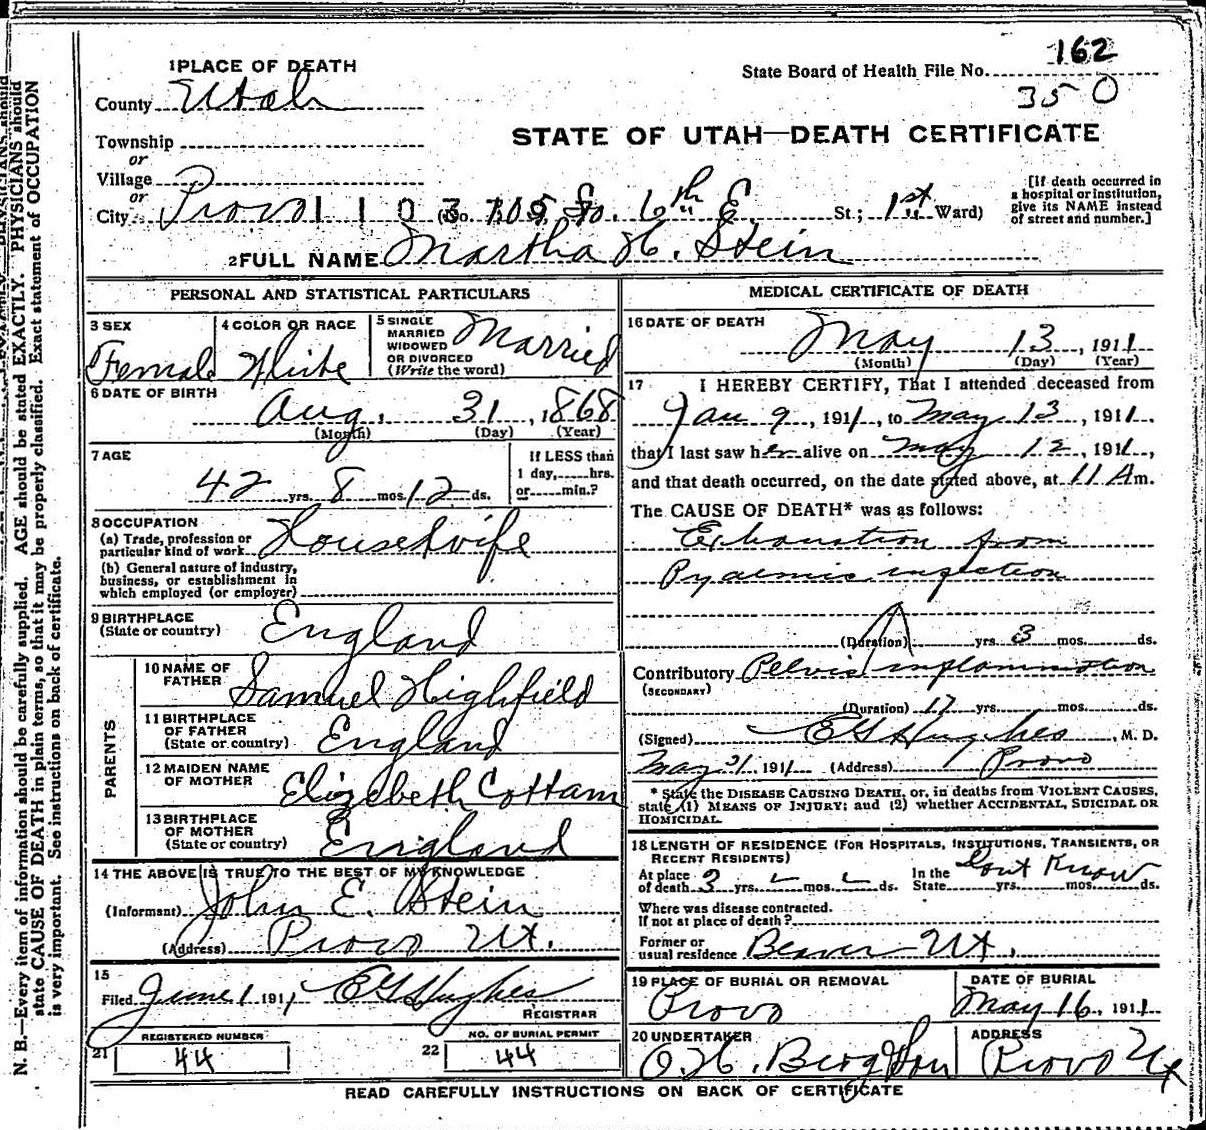 1 PLACE OF DEATH
County Utah
Township
or
Village
or
City Provo 1 1 0 3 (No. 705 So. 6th E. St.; 1st Ward)
State Board of Health File No. 162
350
STATE OF UTAH—DEATH CERTIFICATE
[If death occurred in a hospital or institution, give its NAME instead of street and number.]
2 FULL NAME Martha H. Stein
PERSONAL AND STATISTICAL PARTICULARS
3 SEX
Female
4 COLOR OR RACE
White
5 SINGLE
MARRIED
WIDOWED
OR DIVORCED
(Write the word)
Married
6 DATE OF BIRTH
Aug. 31, 1868
(Month) (Day) (Year)
7 AGE
42 yrs. 8 mos. 12 ds.
If LESS than
1 day, hrs.
or min.?
8 OCCUPATION
(a) Trade, profession or
particular kind of work Housewife
(b) General nature of industry,
business, or establishment in
which employed (or employer)
9 BIRTHPLACE
(State or country) England
PARENTS
10 NAME OF
FATHER Samuel Highfield
11 BIRTHPLACE
OF FATHER
(State or country) England
12 MAIDEN NAME
OF MOTHER Elizebeth Cottam
13 BIRTHPLACE
OF MOTHER
(State or country) England
14 THE ABOVE IS TRUE TO THE BEST OF MY KNOWLEDGE
(Informant) John E. Stein
(Address) Provo Ut.
15
Filed June 1 1911 EG Hughes
REGISTRAR
REGISTERED NUMBER
21 44
NO. OF BURIAL PERMIT
22 44
MEDICAL CERTIFICATE OF DEATH
16 DATE OF DEATH
May 13, 1911
(Month) (Day) (Year)
17 I HEREBY CERTIFY, That I attended deceased from
Jan 9, 1911, to May 13, 1911.
that I last saw her alive on May 12, 1911,
and that death occurred, on the date stated above, at 11 Am.
The CAUSE OF DEATH* was as follows:
Exhaustion from
Pyaemic infection
(Duration) yrs. 3 mos. ds.
Contributory Pelvis inflammation
(SECONDARY)
(Duration) 17 yrs. mos. ds.
(Signed) EG Hughes, M. D.
May 31 1911 (Address) Provo
* State the DISEASE CAUSING DEATH, or, in deaths from VIOLENT CAUSES,
state (1) MEANS OF INJURY; and (2) whether ACCIDENTAL, SUICIDAL OR
HOMICIDAL.
18 LENGTH OF RESIDENCE (FOR HOSPITALS, INSTITUTIONS, TRANSIENTS, OR
RECENT RESIDENTS)
At place
of death 3 yrs. mos. ds.
In the
State yrs. mos. ds. Dont Know
Where was disease contracted.
If not at place of death?
Former or
usual residence Beaver Ut.
19 PLACE OF BURIAL OR REMOVAL
Provo
DATE OF BURIAL
May 16, 1911
20 UNDERTAKER
O.H. Berg & Son
ADDRESS
Provo Ut
READ CAREFULLY INSTRUCTIONS ON BACK OF CERTIFICATE
N. B.—Every item of information should be carefully supplied. AGE should be stated EXACTLY. PHYSICIANS should
state CAUSE OF DEATH in plain terms, so that it may be properly classified. Exact statement of OCCUPATION
is very important. See instructions on back of certificate.